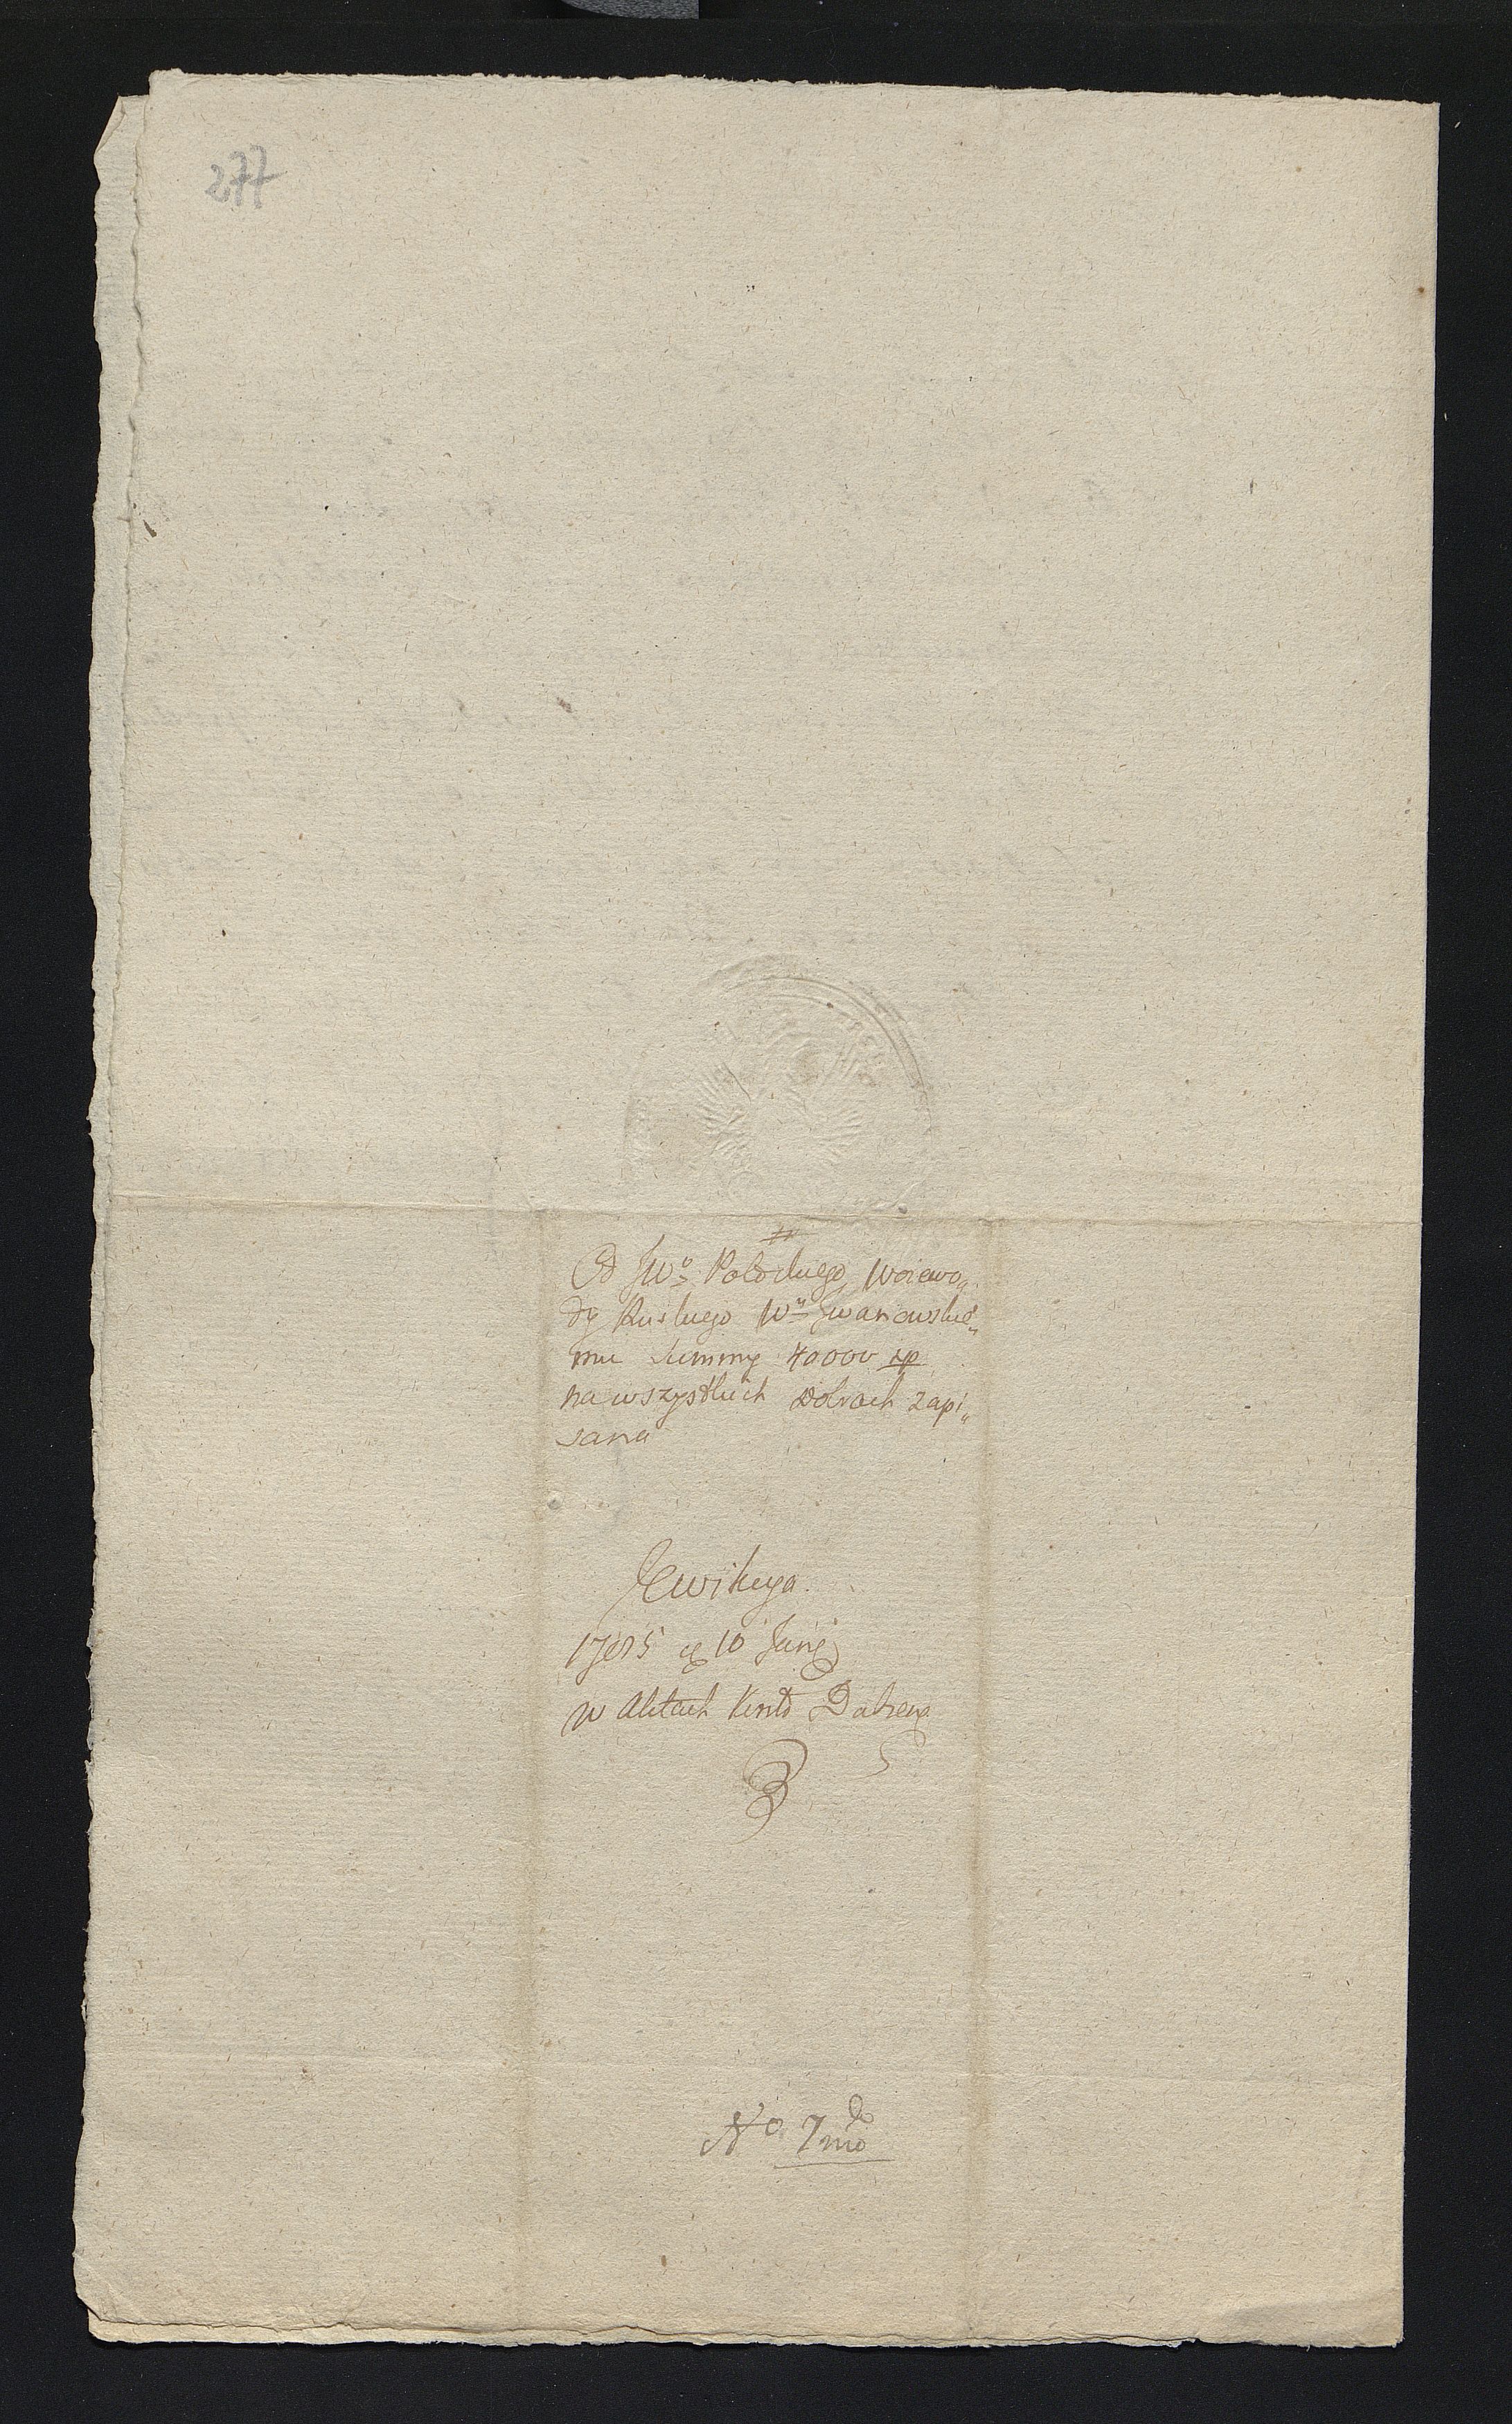 277
#
Od JWo Potockiego Woiewo„
dy Ruskiego Wu Iwanowskie„
mu Summy 40000 zp
na wszystkich Dobrach zapi„
sana
Ewikcya
1785 10 Junij
w Aktach
No 7mo